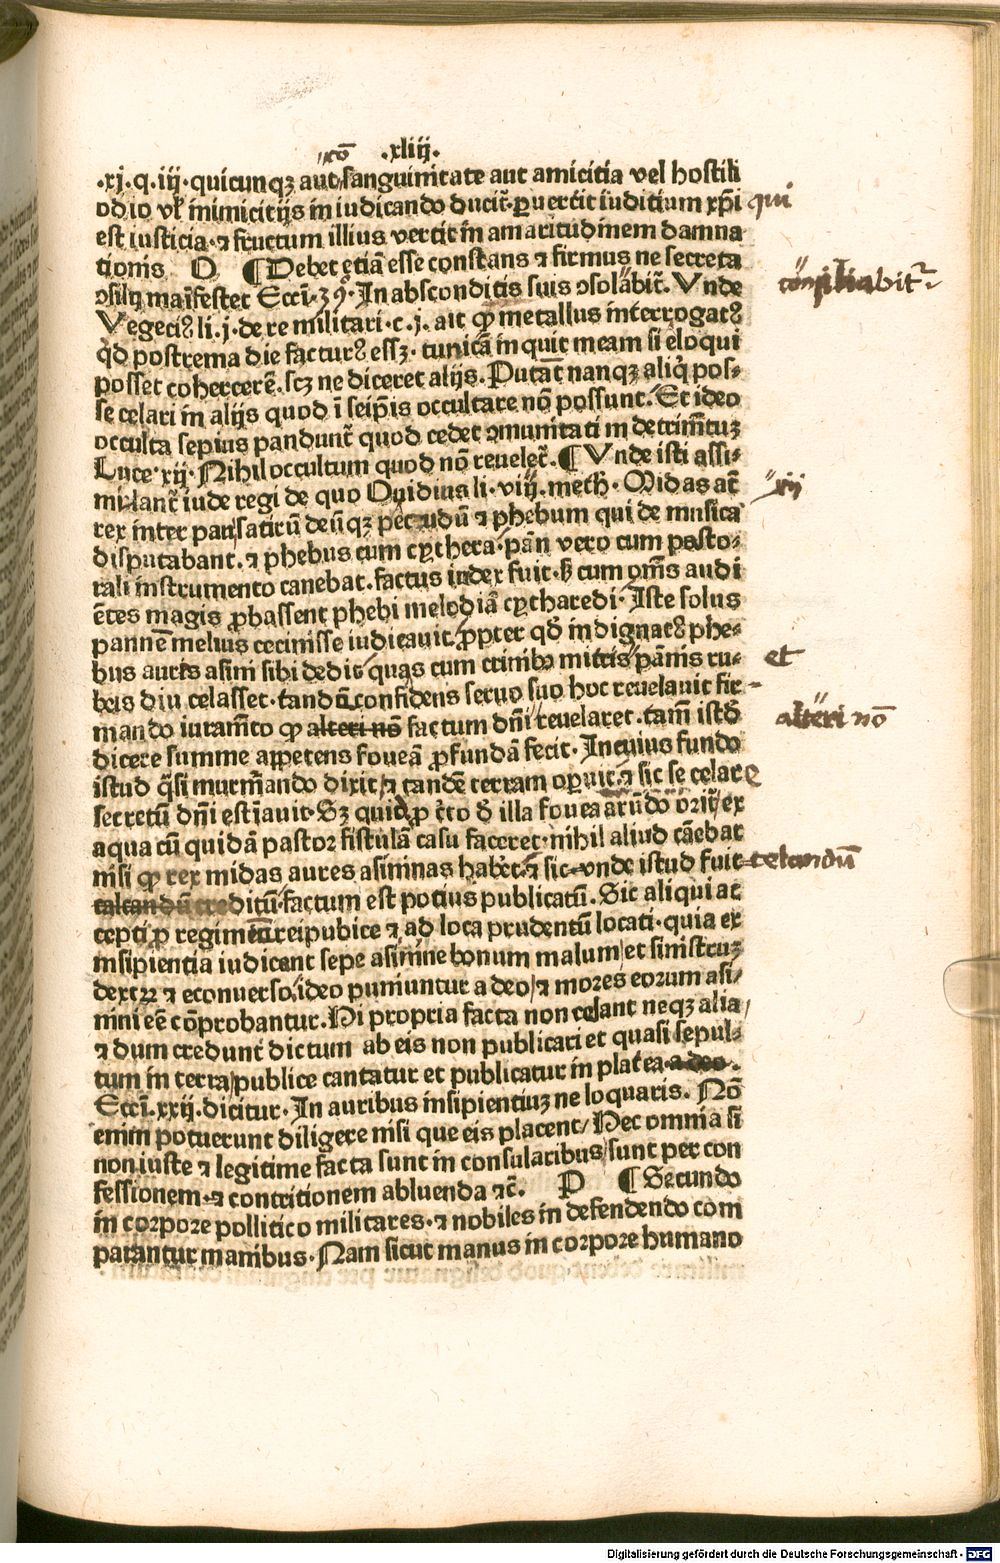 .xliij.
cō
.xj.q.iij.quicunqꝫ aut sanguinitate aut amicitia vel hostili
odio vł inimicitijs in iudicando ducit̃.ꝑuertit iuditium xp̄i qui
est iusticia.⁊ fructum illius vertit in amaritudinem damna
tionis O ¶Debet etiā esse constans ⁊ firmus ne secreta
ꝯsilij maīfestet Eccī.3ꝯ.In absconditis suis ꝯsolabit̃.Vnde consiliabit̃
Vegeciꝰ li.j.de re militari.c.j.ait ꝙ metallus interrogatꝰ
qd̓ postrema die facturꝰ essꝫ.tunicā inquit meam si eloqui
posset cohercerē.scꝫ ne diceret alijs.Putāt nanqꝫ aliq̓ pos-
se celari in alijs quod ī seip̄is occultare nō possunt.Et ideo
occulta sepius pandunt̃ quod cedet ꝯmunitati in detrim̄tuꝫ
Luce.xij.Nihil occultum quod nō reuelet̃.¶Vnde isti assi-
milant̃ iude regi de quo Ouidius li.viij.meth.Midas at̄ xij
rex inter pan satirū deūqꝫ pecudū ⁊ phebum qui de musica
disputabant.⁊ phebus cum cythera.pan vero cum pasto-
rali instrumento canebat.factus iudex fuit.ꝫ cum om̄s audi
ētes magis ꝓbassent phebi melodiā cytharedi.Iste solus
pannē melius cecinisse iudicauit ꝓpter qd̓ indignatꝰ phe-
bus aures asini sibi dedit quas cum crinibꝰ mitris pānis ru- et
beis diu celasset.tandē confidens seruo suo hoc reuelauit fir-
mando iuram̄to ꝙ alteri nō factum dn̄i reuelaret.tam̄ istđ alteri nō
dicere summe appetens foueā ꝓfundā fecit.In cuius fundo
istud q̓si murm̄ando dixit ⁊ tandē terram oꝑuit.⁊ sic se celare
secretū dn̄i estīauit.Sꝫ quid ꝓ c̓to đ illa fouea arūdo orit̃ ex
aqua cū quidā pastor fistulā casu faceret.nihil aliud cāebat
nisi ꝙ rex midas aures asininas hab̓et.⁊ sic vnde istud fuit celandū
creditū.factum est potius publicatū.Sic aliqui ac
cepti ꝓ regimēe reipubice ⁊ ad loca prudentū locati.quia ex
insipientia iudicant sepe asinine bonum malum et sinistruꝫ
dextꝝ ⁊ econuerso ideo puniuntur a deo ⁊ mores eorum asi-
nini eē cōprobantur.Ni propria facta non celant neqꝫ alia
⁊ dum credunt dictum ab eis non publicari et quasi sepul-
tum in terra publice cantatur et publicatur in platea a deo.
Eccī.xxij.dicitur.In auribus insipientiuꝫ ne loquaris. Nō
enim potuerunt diligere nisi que eis placent/Nec omnia si
non iuste ⁊ legitime facta sunt in consularibus/sunt per con
fessionem.⁊ contritionem abluenda ⁊c̄. P ¶Secundo
in corpore pollitico militares.⁊ nobiles in defendendo com
parantur manibus.Nam sicut manus in corpore humano
Digitalisierung gefördert durch die Deutsche Forschungsgemeinschaft - DFG